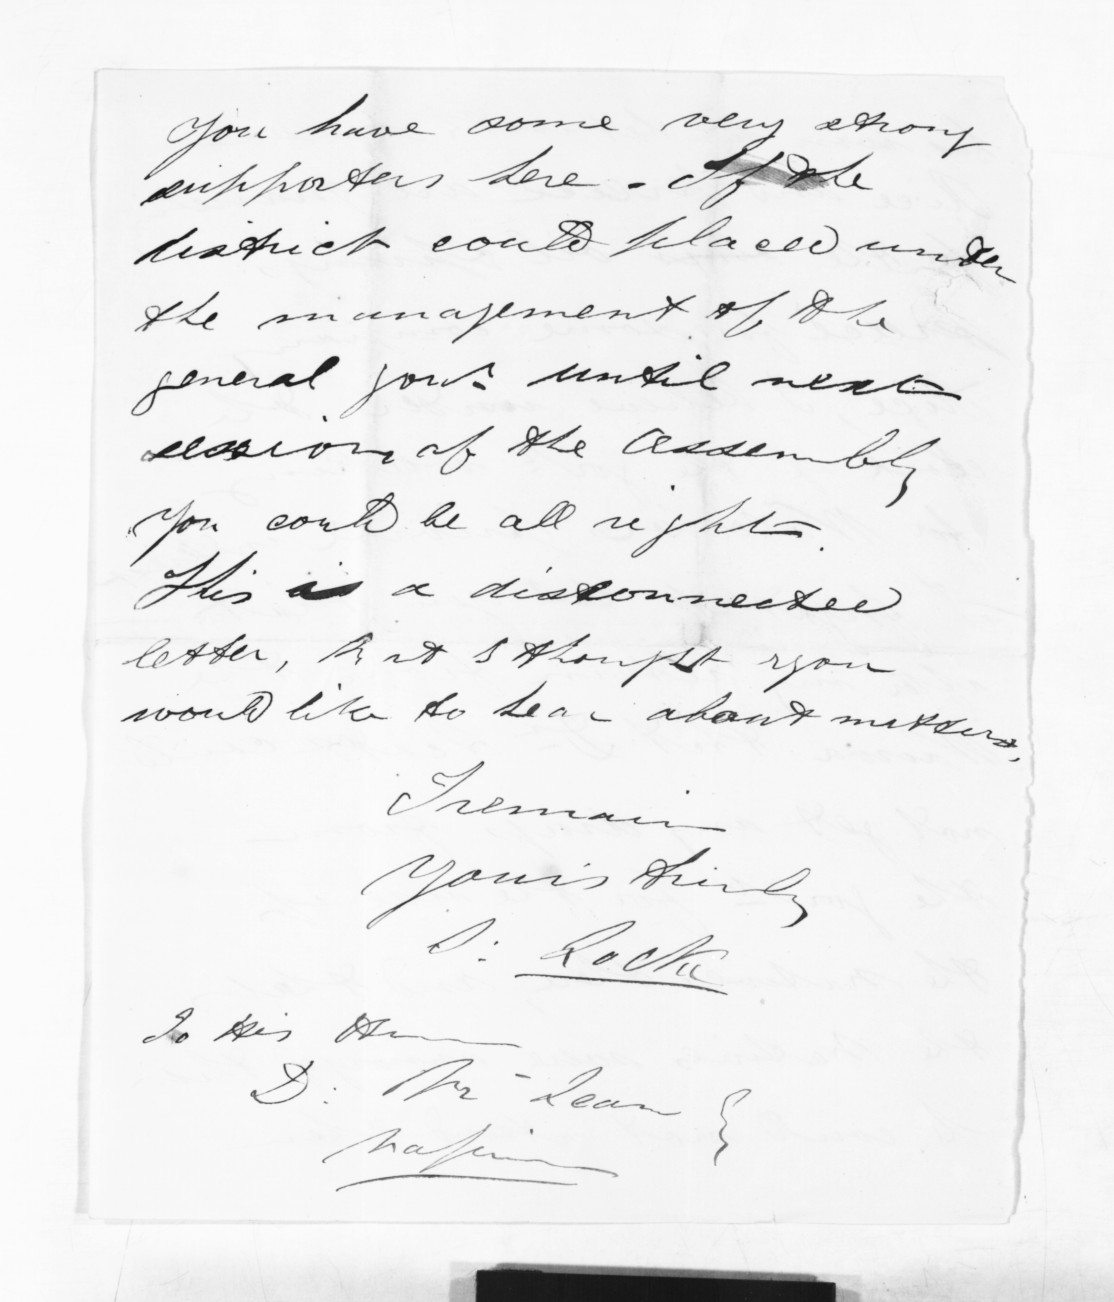 You have some very strong
supporters here - If the
district could placed under
the management of the
general govt. until next
session of the Assembly
you could be all right.
This is a disconnected
letter, but I thought you
would like to hear about matters.
I remain
Yours truly
S: Locke
To His Honor
D: McLean
Napier